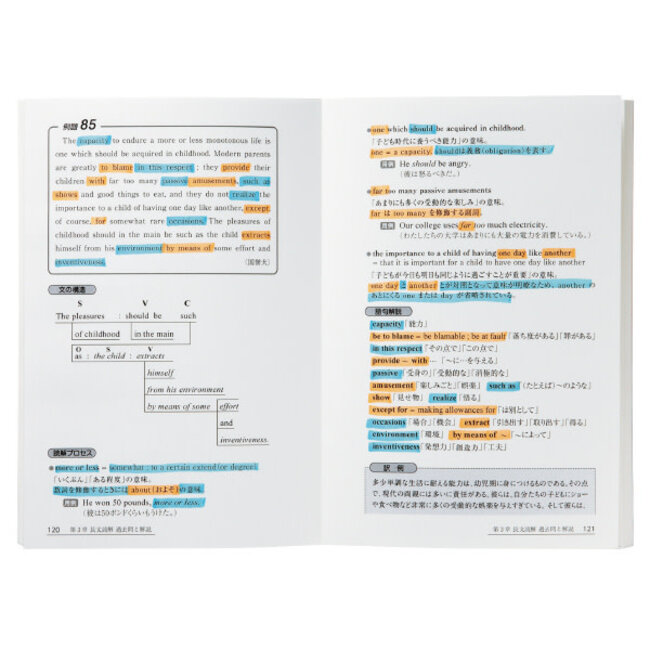 例題 85
The capacity to endure a more or less monotonous life is
one which should be acquired in childhood. Modern parents
are greatly to blame in this respect ; they provide their
children with far too many passive amusements, such as
shows and good things to eat, and they do not realize the
importance to a child of having one day like another, except
of course, for somewhat rare occasions. The pleasures of
childhood should in the main be such as the child extracts
himself from his environment by means of some effort and
inventiveness.
文の構造
S V C
The pleasures : should be such
of childhood in the main
O S V
as : the child : extracts
himself
from his environment
by means of some effort
and
inventiveness
読解プロセス
more or less = somewhat ; to a certain extend (or degree)
「いくぶん」「ある程度」の意味。
数詞を修飾するときには about (およそ) の意味。
用例 He won 50 pounds, more or less.
（彼は50ポンドくらいもうけた。）
120 第3章 長文読解 過去問と解説
one which should be acquired in childhood.
「子ども時代に養うべき能力」の意味。
one = a capacity. shouldは義務(obligation)を表す。
用例 He should be angry.
（彼は怒るべきだ。）
far too many passive amusements
「あまりにも多くの受動的な楽しみ」の意味。
far は too many を修飾する副詞。
用例 Our college uses far too much electricity.
（わたしたちの大学はあまりにも大量の電力を消費している。）
the importance to a child of having one day like another
= that it is important for a child to have one day like another
「子どもが今日も明日も同じように過ごすことが重要」の意味。
one day と another とが対照となって意味が明瞭なため、another の
あとにくる one または day が省略されている。
語句解説
capacity「能力」
be to blame = be blamable ; be at fault「落ち度がある」「罪がある」
in this respect「その点で」「この点で」
provide ~ with …「~に…を与える」
passive「受身の」「受動的な」「消極的な」
amusement「楽しみごと」「娯楽」 such as「(たとえば)~のような」
show「見せ物」 realize「悟る」
except for = making allowances for「は別として」
occasions「場合」「機会」 extract「引き出す」「取り出す」「得る」
environment「環境」 by means of ~「~によって」
inventiveness「発想力」「創造力」「工夫」
訳 例
多少単調な生活に耐える能力は、幼児期に身につけるものである。その点
で、現代の両親には多いに責任がある。彼らは、自分たちの子どもにショー
や食べ物など非常に多くの受動的な娯楽を与えすぎている。そして彼らは、
第3章 長文読解 過去問と解説 121